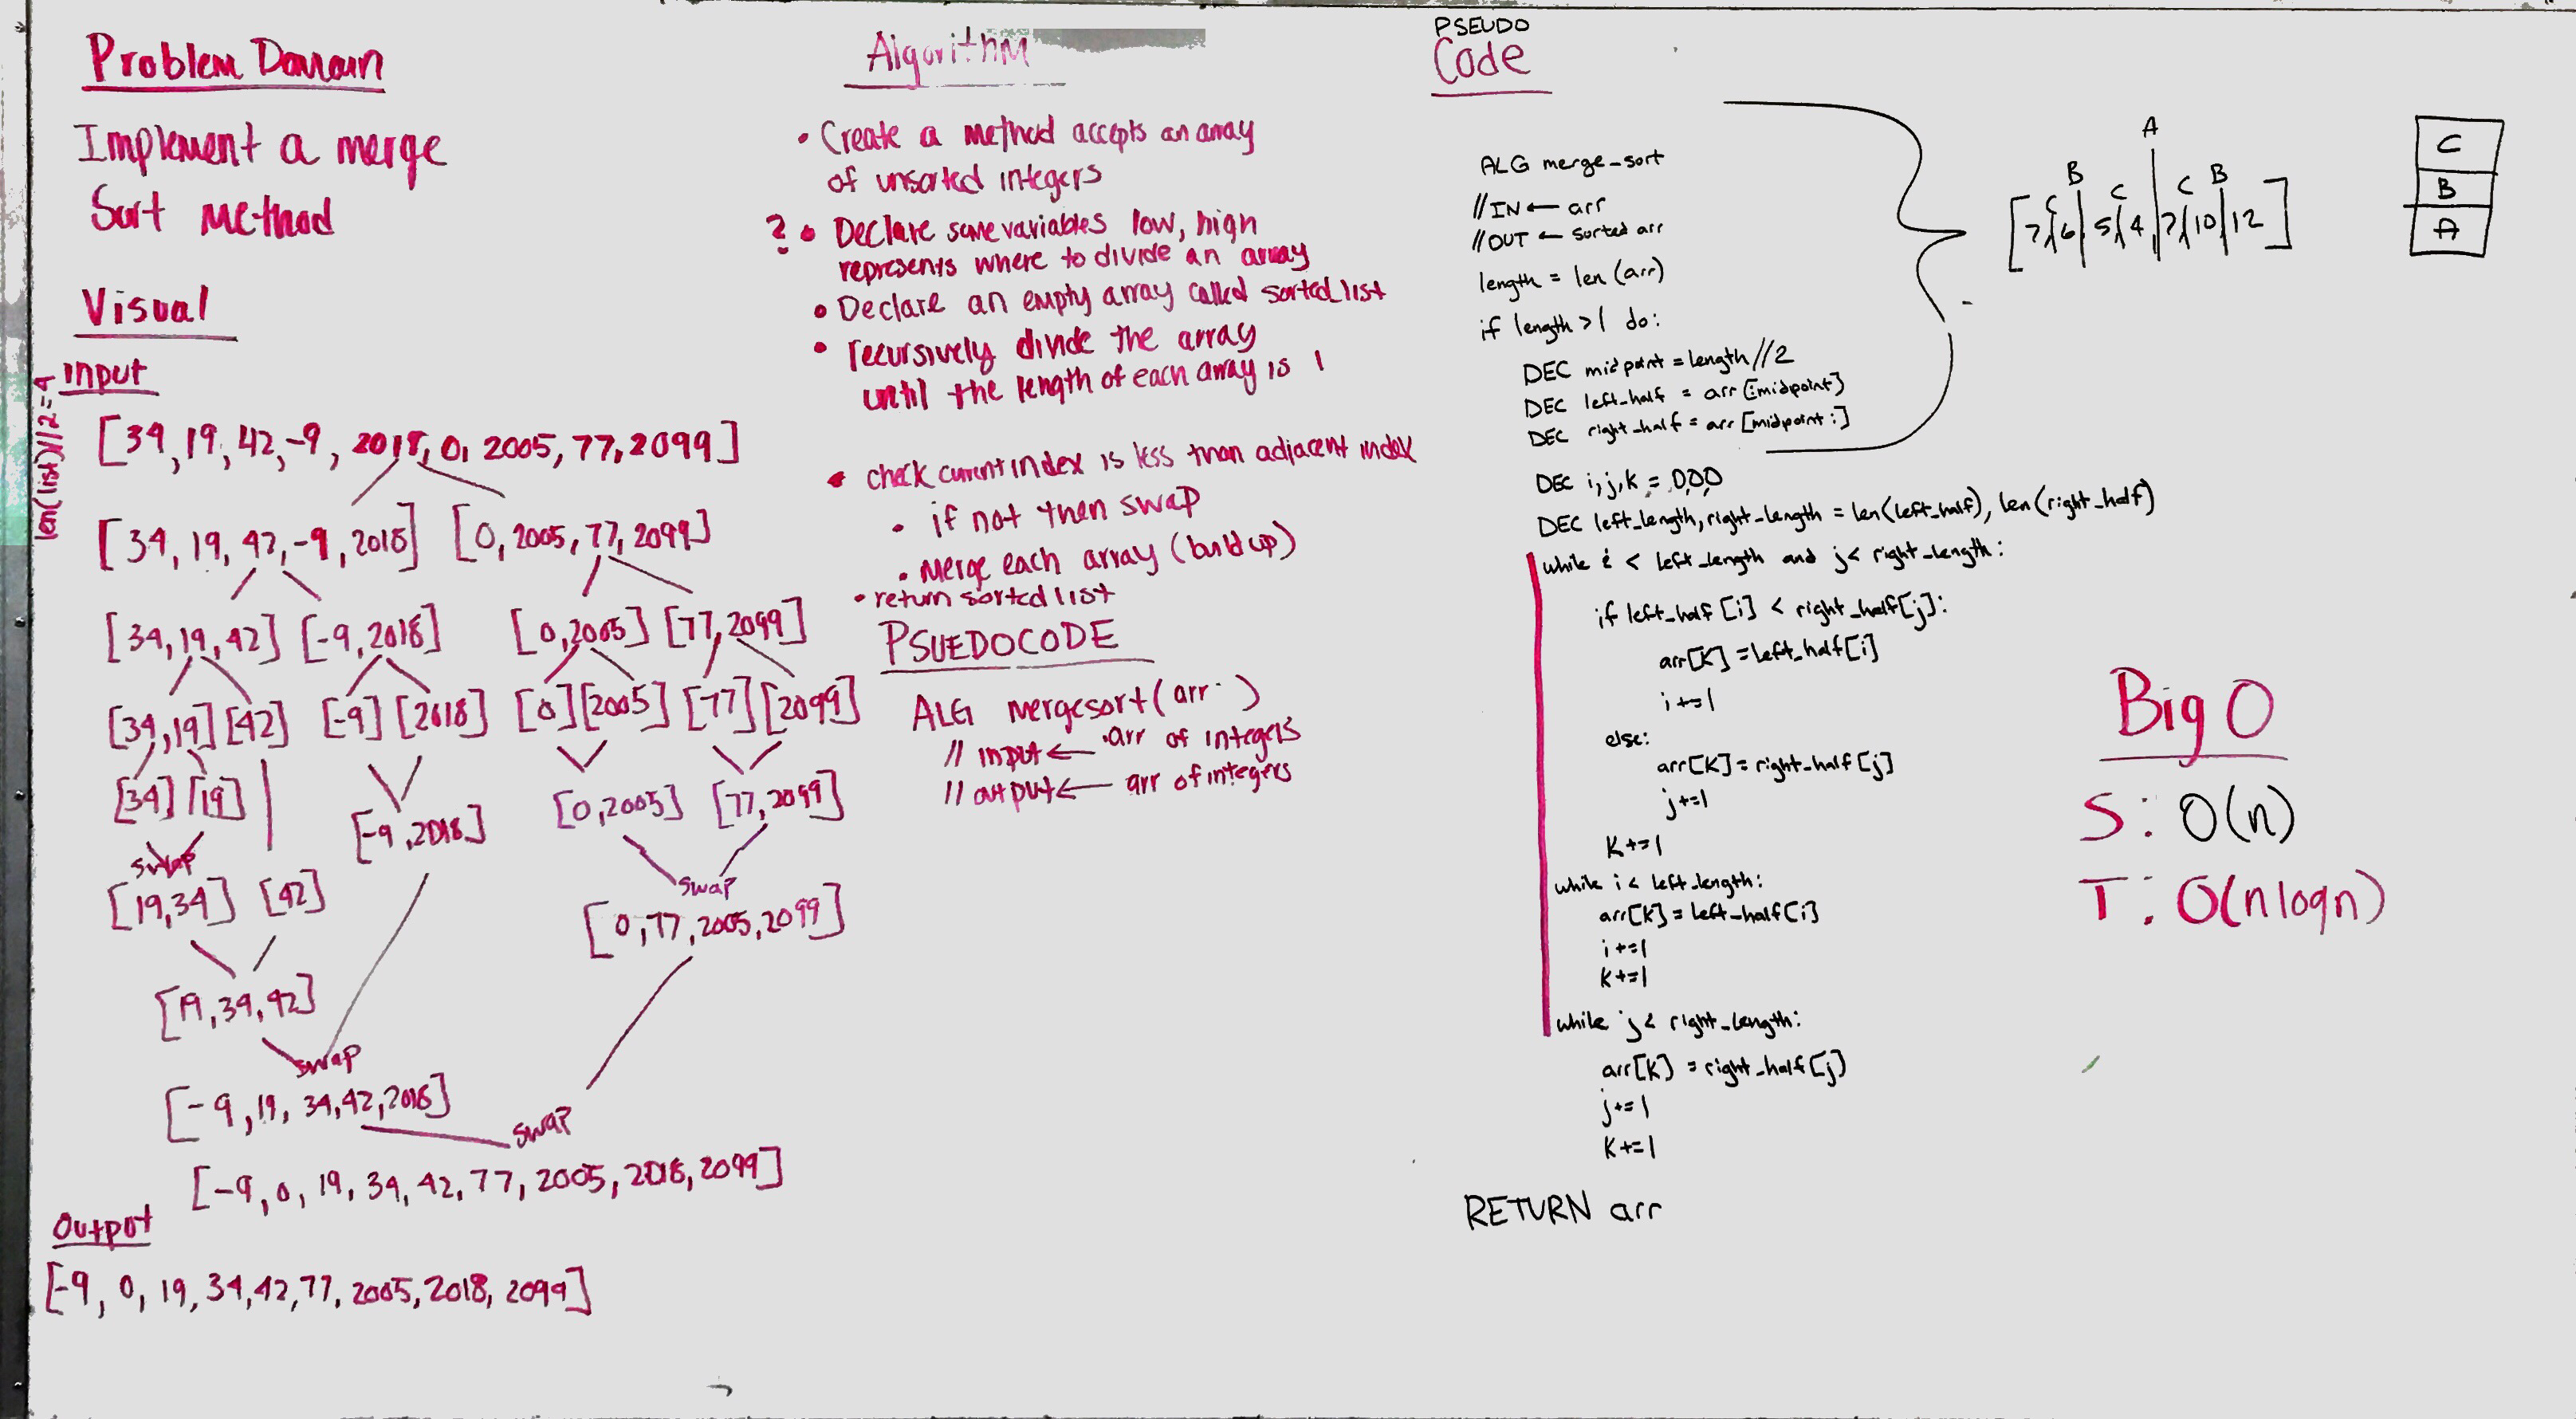 Problem Domain
Implement a merge
Sort Method
Visual
Input
len(list)//2=4
[34,19,42,-9,2018,0,2005,77,2099]
[34,19,42,-9,2018] [0,2005,77,2099]
[34,19,42] [-9,2018] [0,2005] [77,2099]
[34,19] [42] [-9] [2018] [0] [2005] [77] [2099]
[34] [19]
[-9,2018] [0,2005] [77,2099]
swap
[19,34] [42]
swap
[0,77,2005,2099]
[19,34,42]
swap
[-9,19,34,42,2018]
swap
[-9,0,19,34,42,77,2005,2018,2099]
Output
[-9,0,19,34,42,77,2005,2018,2099]
Algorithm
• Create a method accepts an array
of unsorted integers
? • Declare some variables low, high
represents where to divide an array
• Declare an empty array called sorted_list
• recursively divide the array
until the length of each array is 1
• check current index is less than adjacent index
• if not then swap
• Merge each array (build up)
• return sorted list
PSUEDOCODE
ALG mergesort(arr )
// input ← arr of integers
// output ← arr of integers
PSEUDO
Code
ALG merge_sort
//IN ← arr
//OUT ← sorted arr
length = len(arr)
if length >1 do:
DEC midpoint = length//2
DEC left_half = arr[:midpoint]
DEC right_half = arr[midpoint:]
DEC i,j,k = 0,0,0
DEC left_length, right_length = len(left_half), len(right_half)
while i < left_length and j< right_length:
if left_half[i] < right_half[j]:
arr[K] = left_half[i]
i+=1
else:
arr[K] = right_half[j]
j+=1
K+=1
while i < left_length:
arr[K] = left_half[i]
i+=1
K+=1
while j< right_length:
arr[K] = right_half[j]
j+=1
K+=1
RETURN arr
A
B C C B
C
[7,6,5,4,7,10,12]
C
B
A
Big O
S: O(n)
T: O(nlogn)